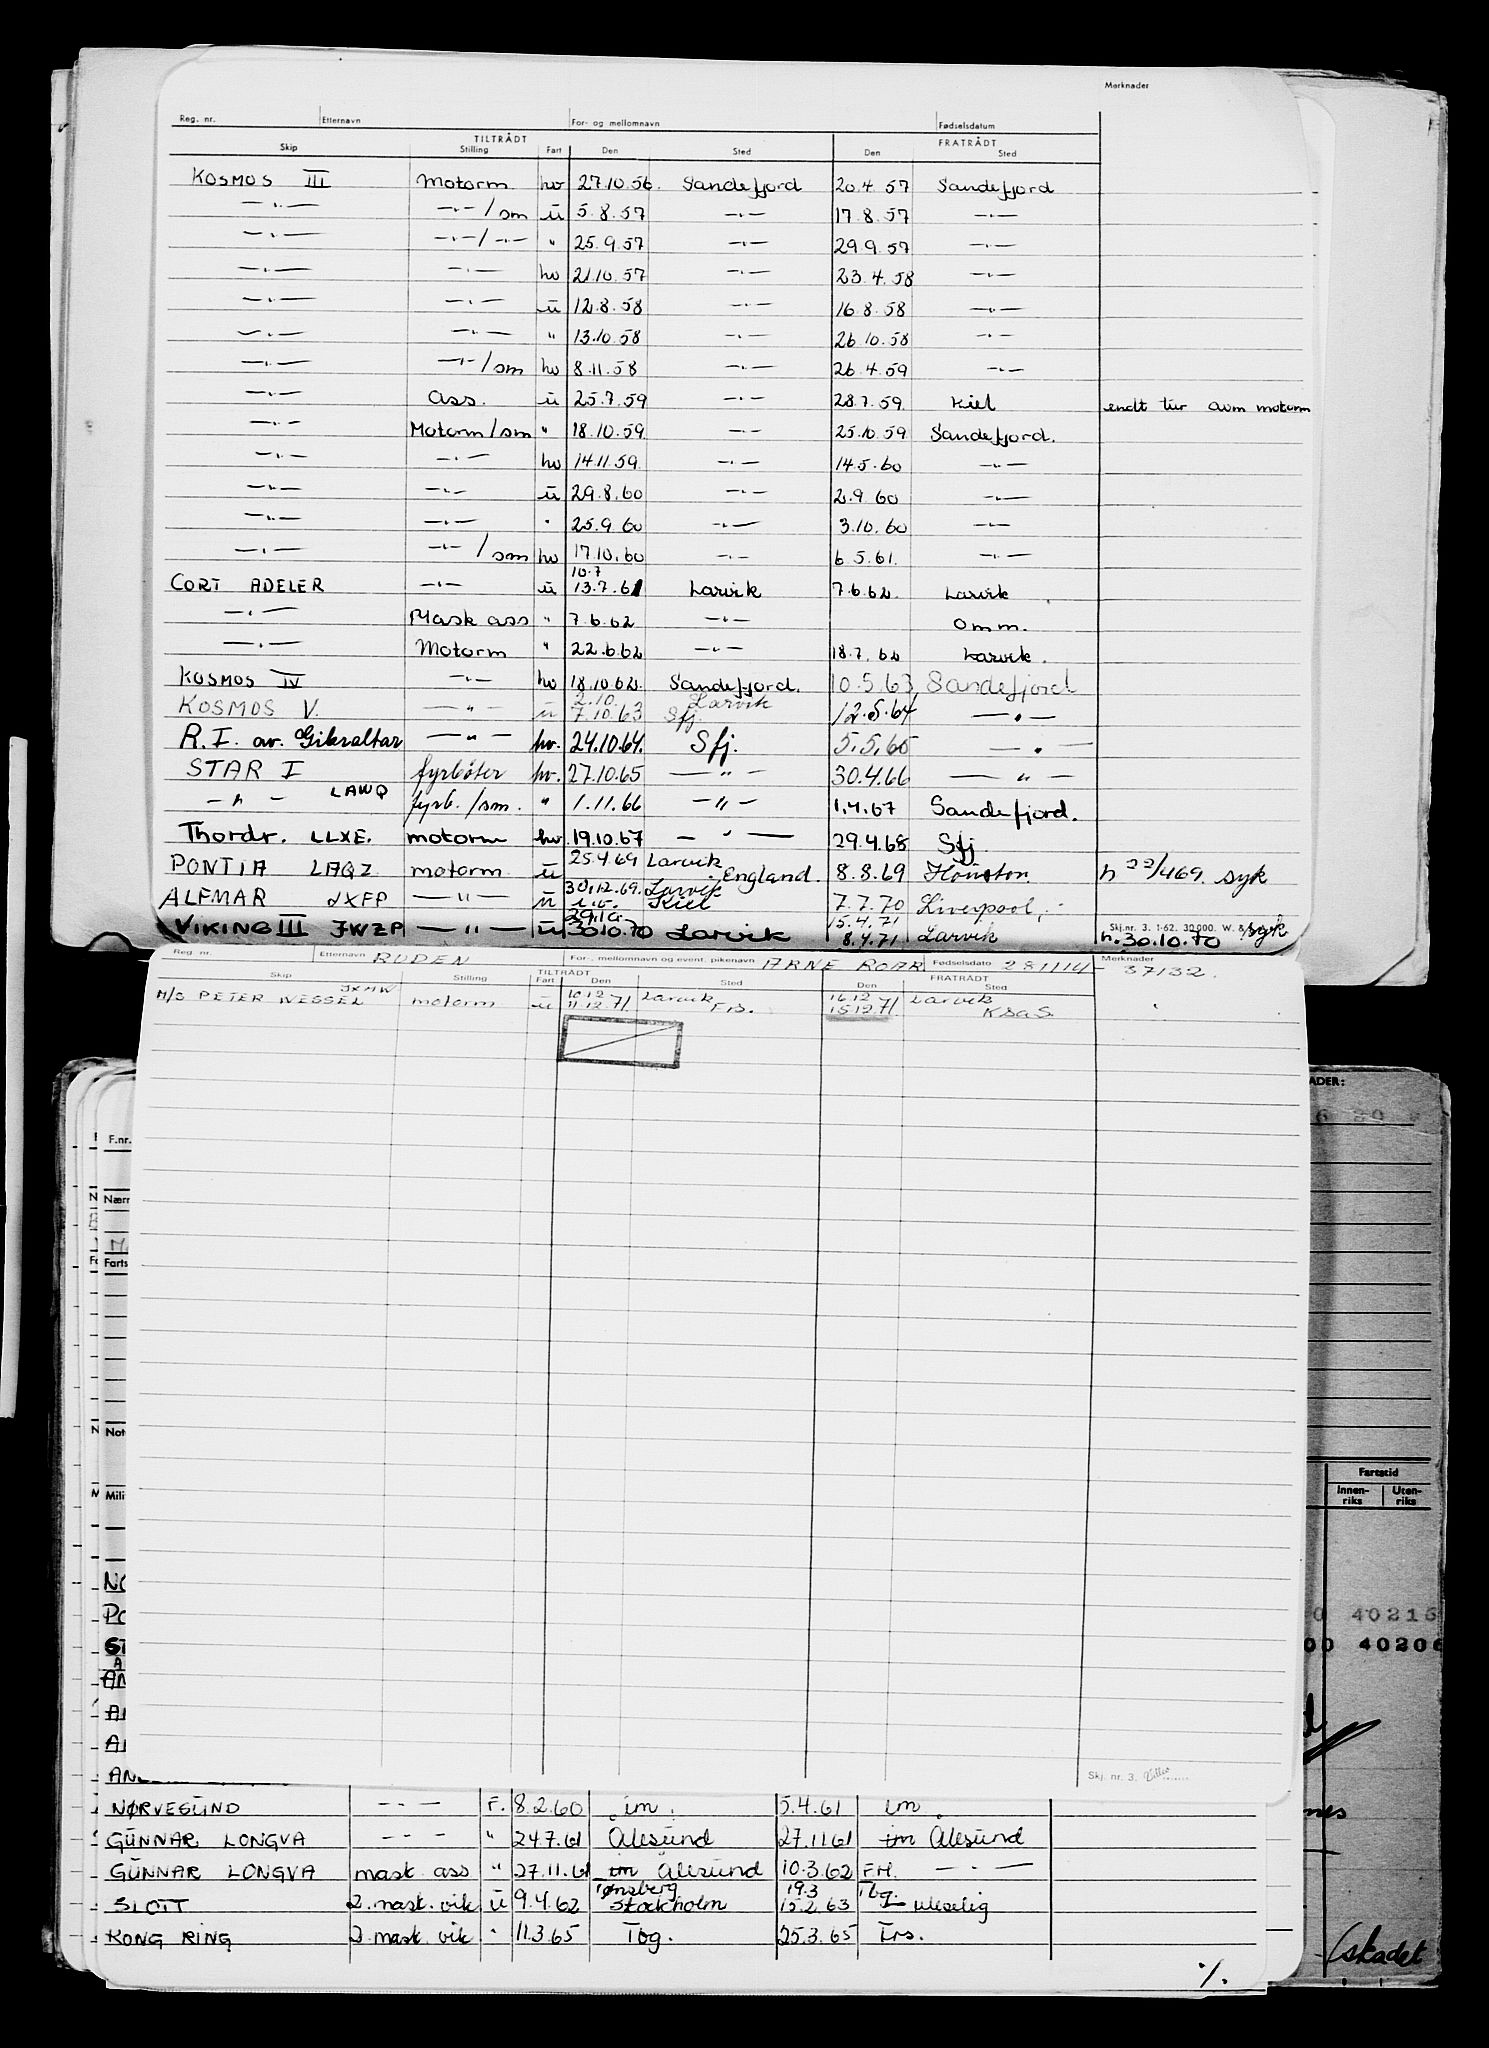 Merknader
Reg. nr. Etternavn For- og mellomnavn Fødselsdatum
TILTRÅDT FRATRÅDT
Skip Stilling Fart Den Sted Den Sted
KOSMOS III Motorm hv 27.10.56. Sandefjord 20.4.57 Sandefjord
—"— —"—/sm ū 5.8.57 —"— 17.8.57 —"—
—"— —"—/—"— " 25.9.57 —"— 29.9.57 —"—
—"— —"— hv 21.10.57 —"— 23.4.58 —"—
—"— —"— ū 12.8.58 —"— 16.8.58 —"—
—"— —"— " 13.10.58 —"— 26.10.58 —"—
—"— —"—/sm hv 8.11.58 —"— 26.4.59 —"—
—"— Ass. ū 25.7.59 —"— 28.7.59 Kiel endt tur som motorm
—"— Motorm/sm " 18.10.59 —"— 25.10.59 Sandefjord.
—"— —"— hv 14.11.59 —"— 14.5.60 —"—
—"— —"— ū 29.8.60 —"— 2.9.60 —"—
—"— —"— " 25.9.60 —"— 3.10.60 —"—
—"— —"—/sm hv 17.10.60 —"— 6.5.61. —"—
10.7
CORT ADELER —"— ū 13.7.61 Larvik 7.6.62. Larvik
—"— Mask ass " 7.6.62 —"— Omm.
—"— Motorm " 22.6.62 —"— 18.7.62 Larvik.
KOSMOS IV —"— hv 18.10.62. Sandefjord. 10.5.63, Sandefjord
2.10. Larvik
KOSMOS V. —"— ū 7.10.63 Sfj. 12.5.64 —"—
R.I. av. Gibraltar —"— hv. 24.10.64. Sfj. 5.5.65 —"—
STAR I fyrbøter hv. 27.10.65 —"— 30.4.66 —"—
—"— LAWQ fyrb./sm. " 1.11.66 —"— 1.4.67 Sandefjord.
Thordr. LLXE. motorm hv. 19.10.67 —"— 29.4.68 Sfj.
25.4.69 Larvik
PONTIA LAQZ motorm ū England. 8.8.69 Houston. h 22/469. syk
30.12.69. Larvik
ALFMAR JXFP —"— ū Kiel 7.7.70 Liverpool
29.10. 15.4.71
VIKING III JWZP —"— ū 30.10.70 Larvik 8.4.71 Larvik h. 30.10.70 syk
Skj.nr. 3. 1-62. 30000. W. &
Reg. nr. Etternavn RUDEN For-, mellomnavn og event. pikenavn ARNE ROAR Fødselsdato 281114- Merknader 37132.
TILTRÅDT FRATRÅDT
Skip Stilling Fart Den Sted Den Sted
JXMW 10.12 Larvik 16.12 Larvik
M/S PETER WESSEL motorm ū 11.12.71. Frs. 15.12.71. KSaS.
Skj. nr. 3.
ADER:
F.nr.
Nærm
Farts
Not
Mili
Fartstid
Innen-riks Uten-riks
0 40215
00 40206
NØRVESUND —"— F. 8.2.60 im. 5.4.61 im
GUNNAR LONGVA —"— " 24.7.61 Ålesund 27.11 61 im Ålesund
GUNNAR LONGVA mask ass " 27.11.61 im Ålesund 10.3.62 FH. —"—
Tønsberg 19.3 Tbg.
SLOTT 2. mask. vik ū 9.4.62 Stockholm 15.2.63 uleselig
KONG RING 2 mask vik " 11.3.65 Tbg. 25.3.65 Frs.
(skadet
%.